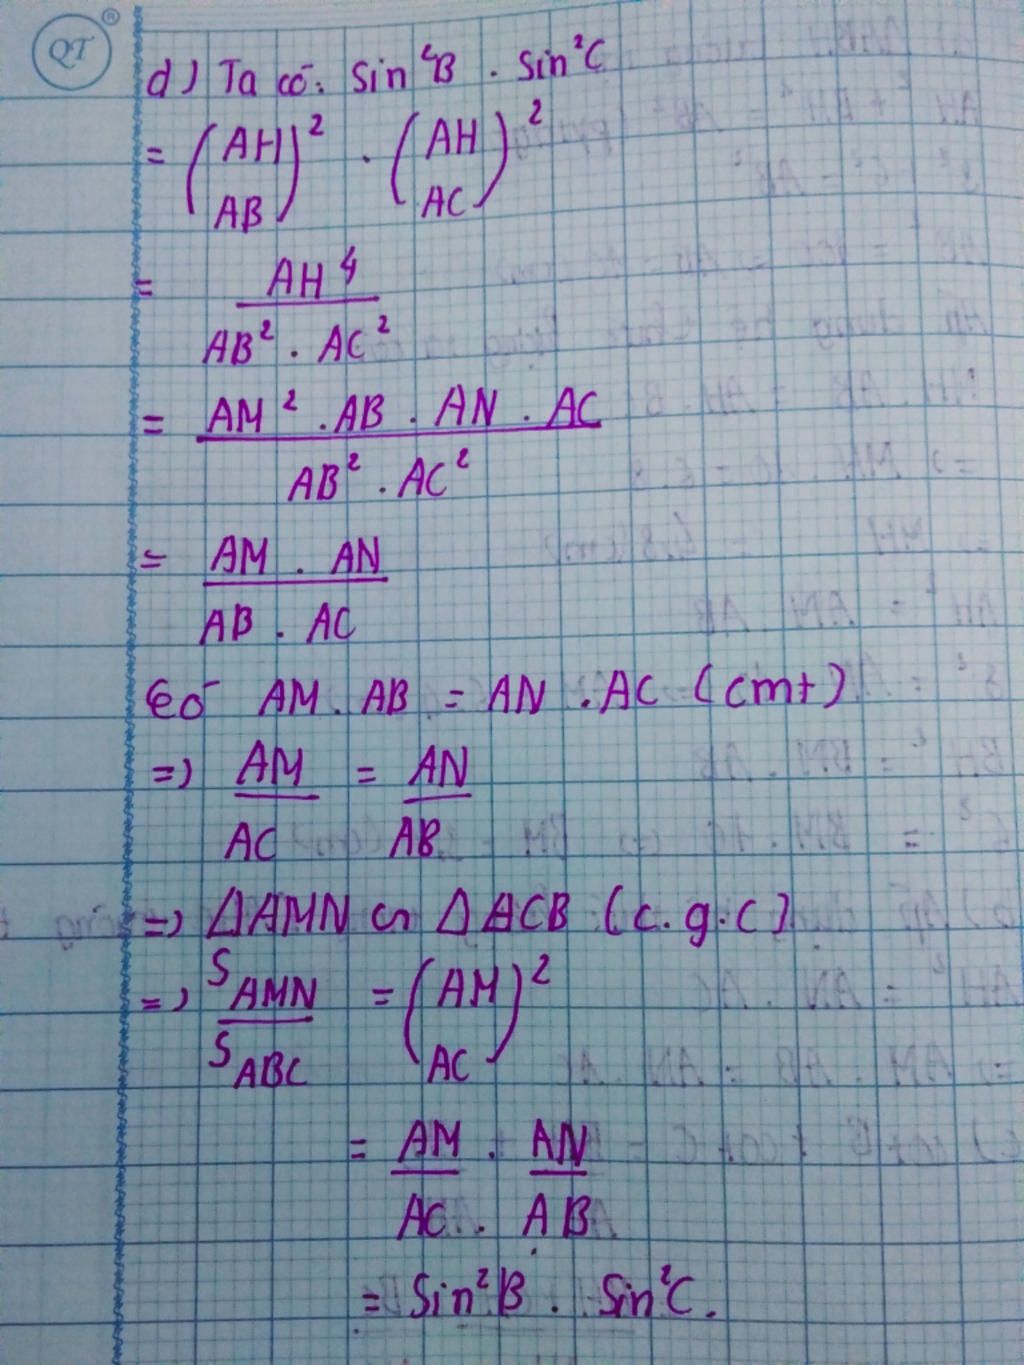 QT ®
d) Ta có: Sin²B . Sin²C
= (AH/AB)² . (AH/AC)²
= AH⁴ / AB² . AC²
= AM² . AB . AN . AC / AB² . AC²
= AM . AN / AB . AC
Có AM . AB = AN . AC (cmt)
=> AM/AC = AN/AB
=> ΔAMN ∽ ΔACB (c.g.c)
=> S AMN / S ABC = (AM/AC)²
= AM/AC . AN/AB
= Sin²B . Sin²C .